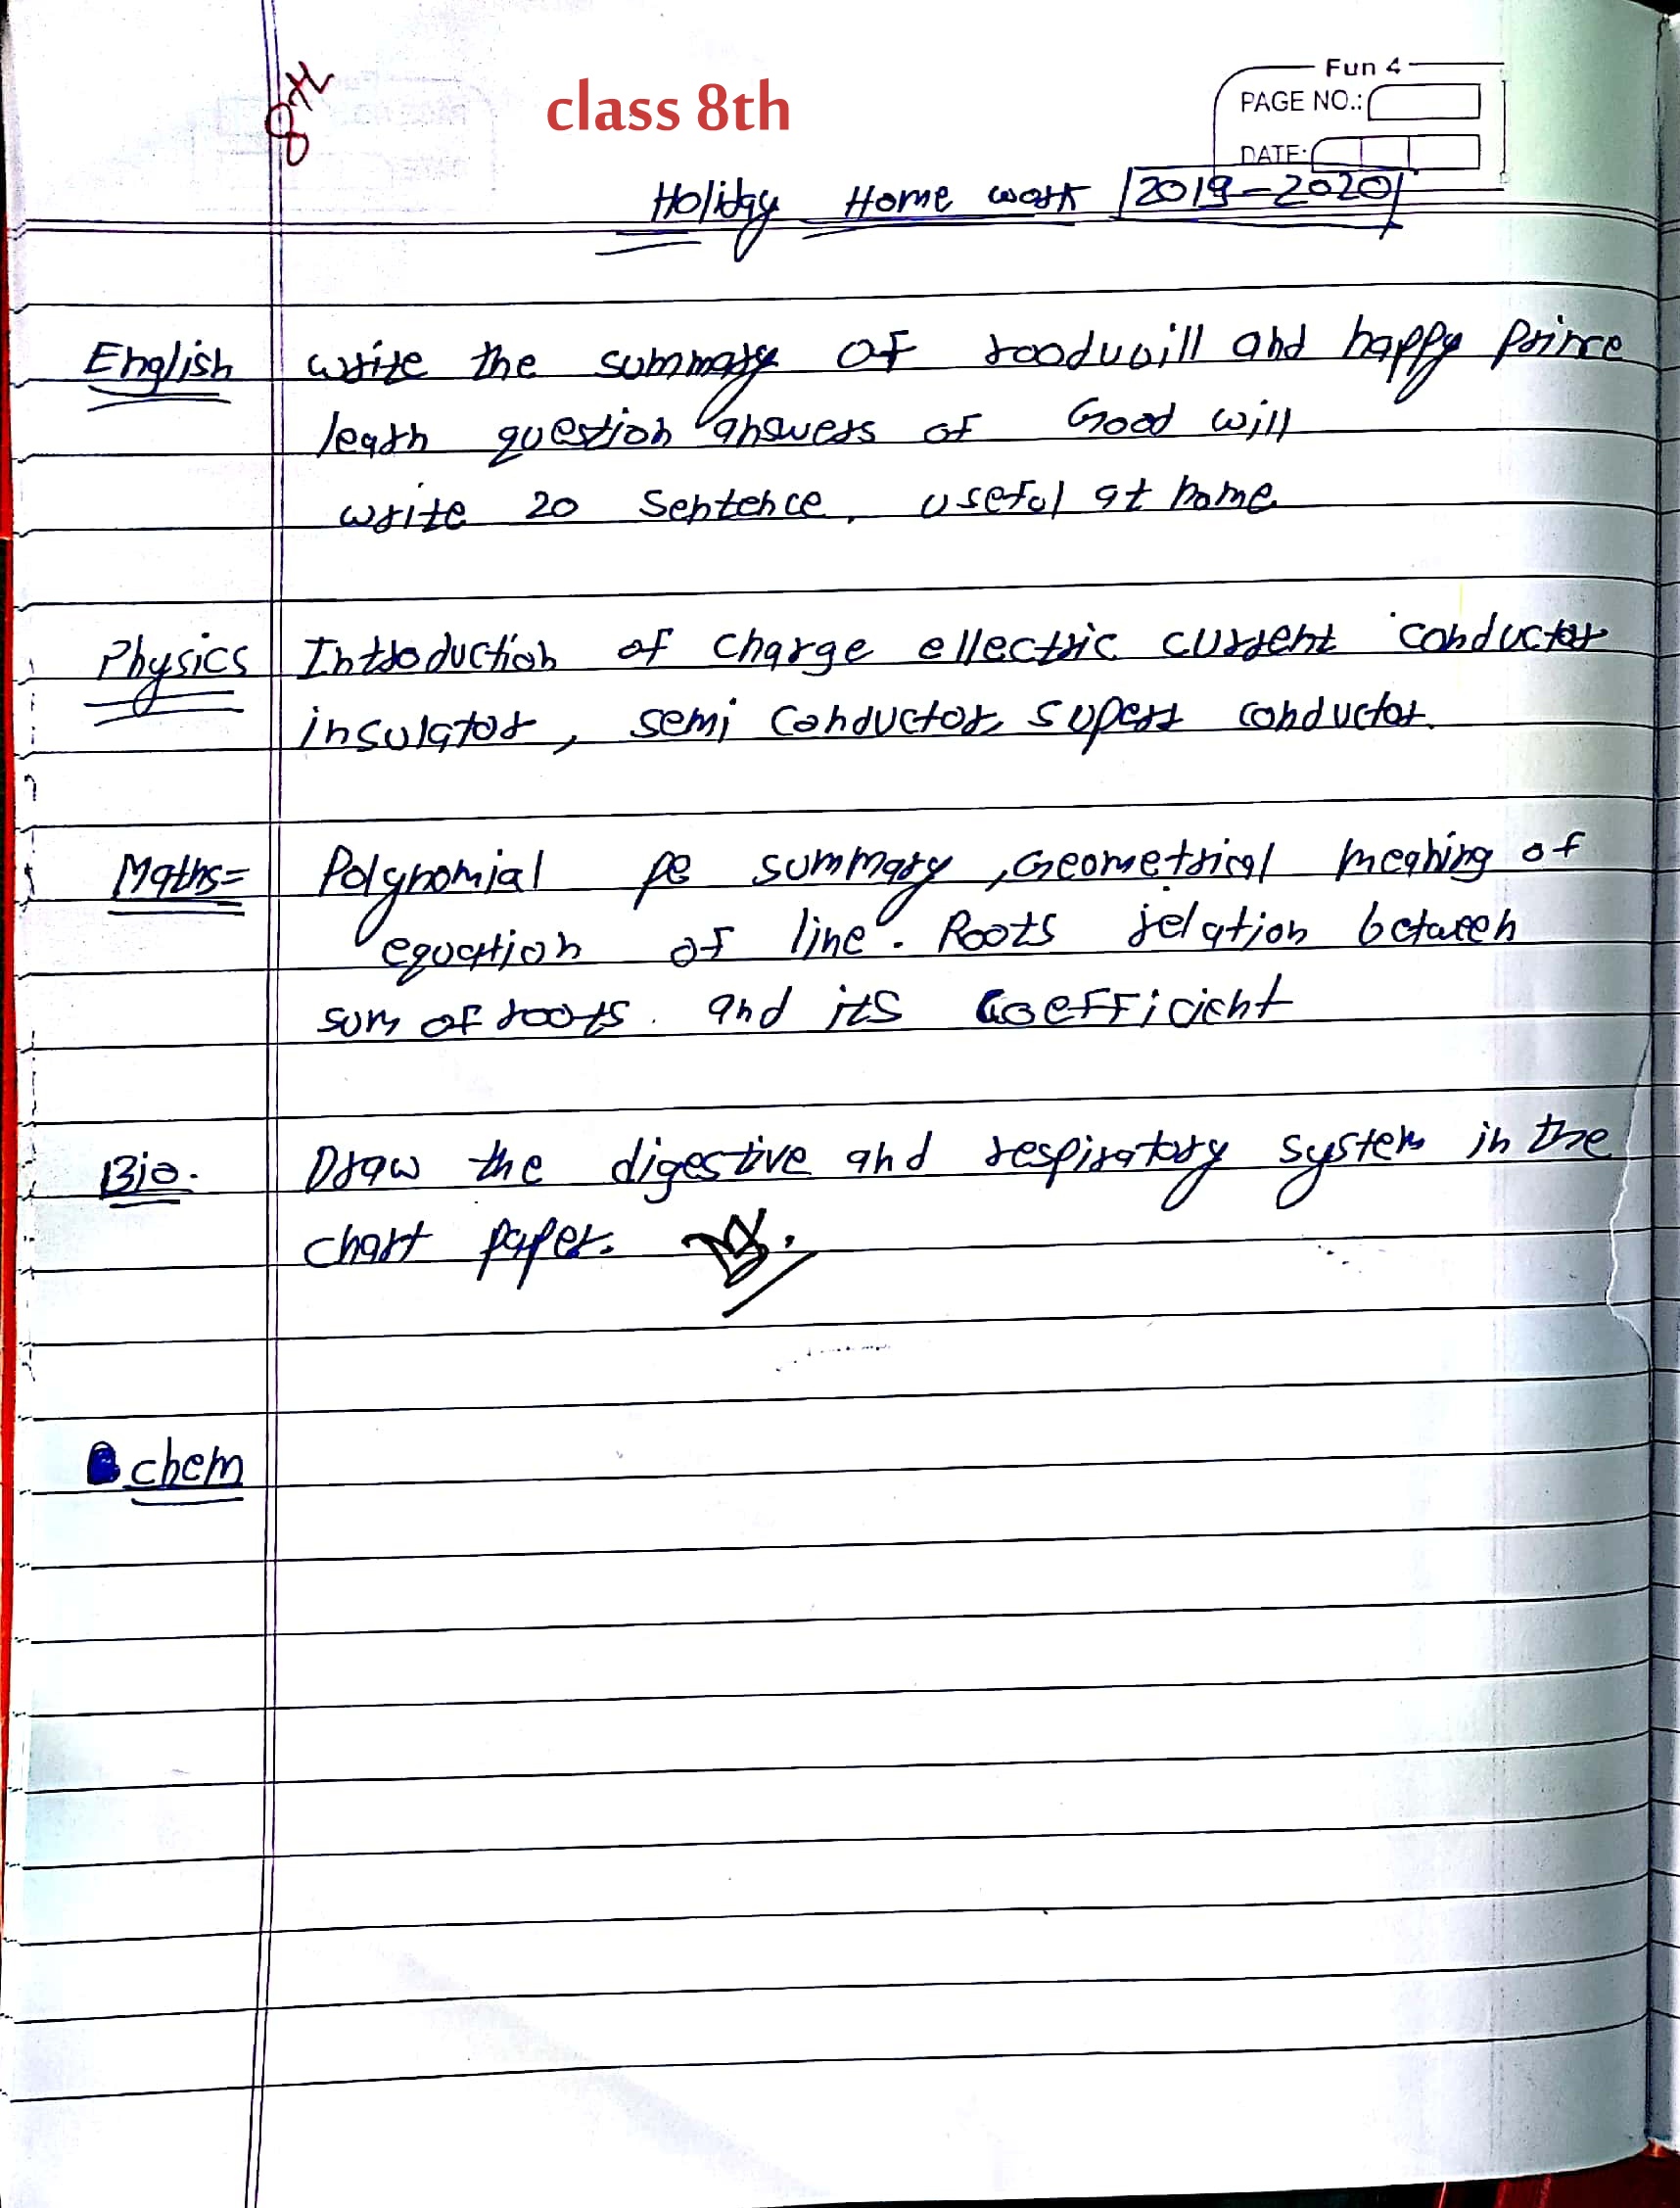 8th
class 8th
Fun 4
PAGE NO.:
DATE:
Holiday Home work 2019-2020
English write the summary of roodwill and happy prince
learn question answers of Good will
write 20 Sentence, useful at home
Physics Introduction of charge ellectric current conductor
insulator, semi conductor, superr conductor.
Maths= Polynomial pe summary, Geometrical meaning of
equation of line. Roots relation between
sum of roots. and its Coefficient
Bio. Draw the digestive and respiratory system in the
chart paper.
chem